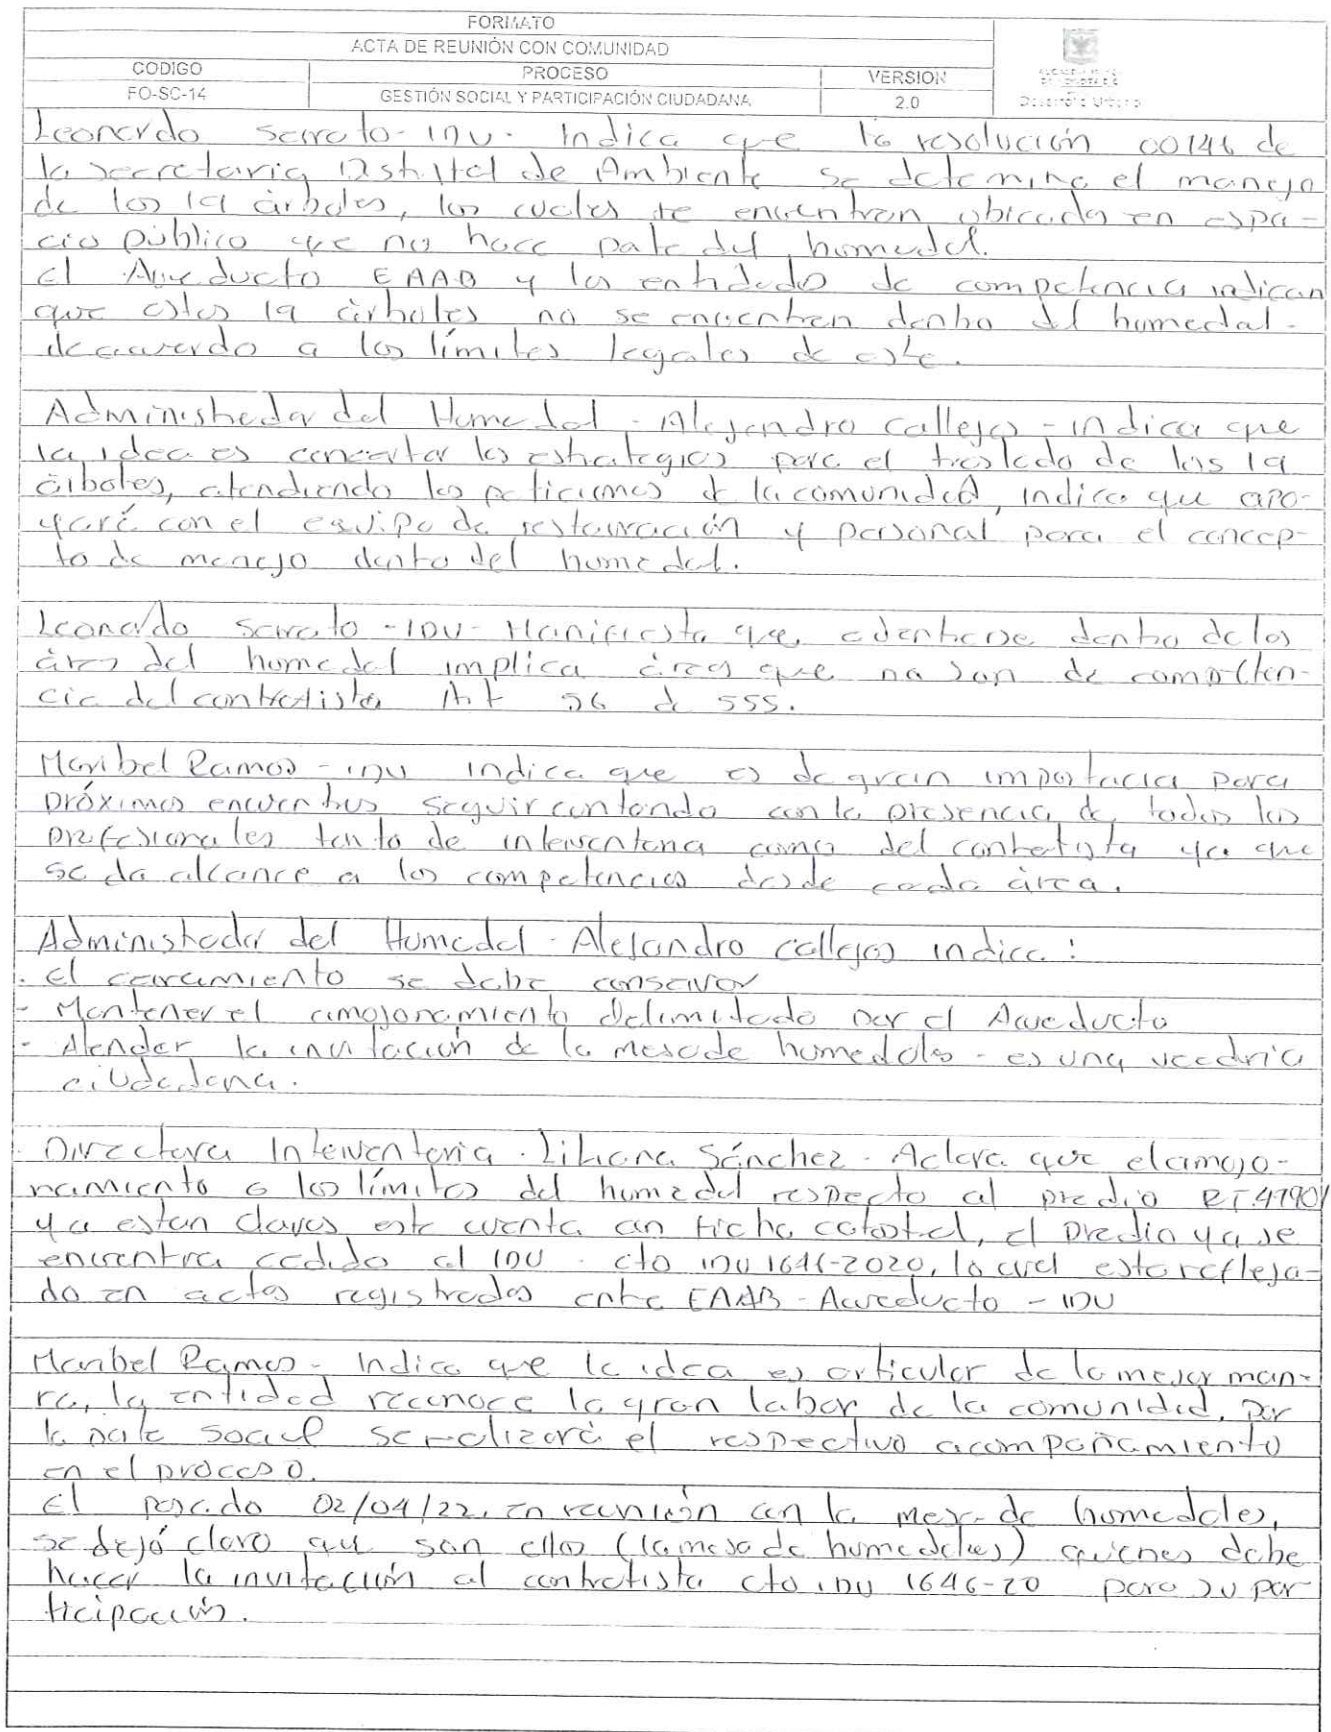 FORMATO
ACTA DE REUNIÓN CON COMUNIDAD
CODIGO PROCESO VERSION
FO-SC-14 GESTIÓN SOCIAL Y PARTICIPACIÓN CIUDADANA 2.0
Desarrollo Urbano
Leonardo Serrato - IDU - Indica que la resolución 00146 de
la Secretaria Distrital de Ambiente se determina el manejo
de los 19 árboles, los cuales se encuentran ubicados en espa-
cio público que no hace parte del humedal.
El Acueducto EAAB y las entidades de competencia indican
que estos 19 árboles no se encuentran dentro del humedal -
deacuerdo a los límites legales de este.
Administrador del Humedal - Alejandro Callejas - indica que
la idea es concertar las estrategias para el traslado de los 19
árboles, atendiendo las peticiones de la comunidad, indica que apo-
yará con el equipo de restauración y personal para el concep-
to de manejo dentro del humedal.
Leonardo Serrato - IDU - Manifiesta que, adentrarse dentro de las
áreas del humedal implica áreas que no son de competen-
cia del contratista Art 56 de 555.
Maribel Ramos - IDU indica que es de gran importacia para
próximos encuentros seguir contando con la presencia de todos los
profesionales tanto de interventoria como del contratista ya que
se da alcance a las competencias desde cada área.
Administrador del Humedal - Alejandro Callejas indica:
- El cerramiento se debe conservar
- Mantener el amojonamiento delimitado por el Acueducto
- Atender la invitación de la mesa de humedales - es una veedria
ciudadana.
Directora Interventoria - Liliana Sánchez - Aclara que el amojo-
namiento o los límites del humedal respecto al predio RT.47901
ya estan claros este cuenta con ficha catastral, el predio ya se
encuentra cedido al IDU - cto IDU 1646-2020, lo cual esta refleja-
do en actas registradas entre EAAB - Acueducto - IDU
Maribel Ramos - Indica que la idea es articular de la mejor mane-
ra, la entidad reconoce la gran labor de la comunidad, por
la parte social se realizará el respectivo acompañamiento
en el proceso.
El pasado 02/04/22, en reunión con la mesa de humedales,
se dejó claro que son ellos (la mesa de humedales) quienes debe
hacer la invitación al contratista cto IDU 1646-20 para su par
ticipación.